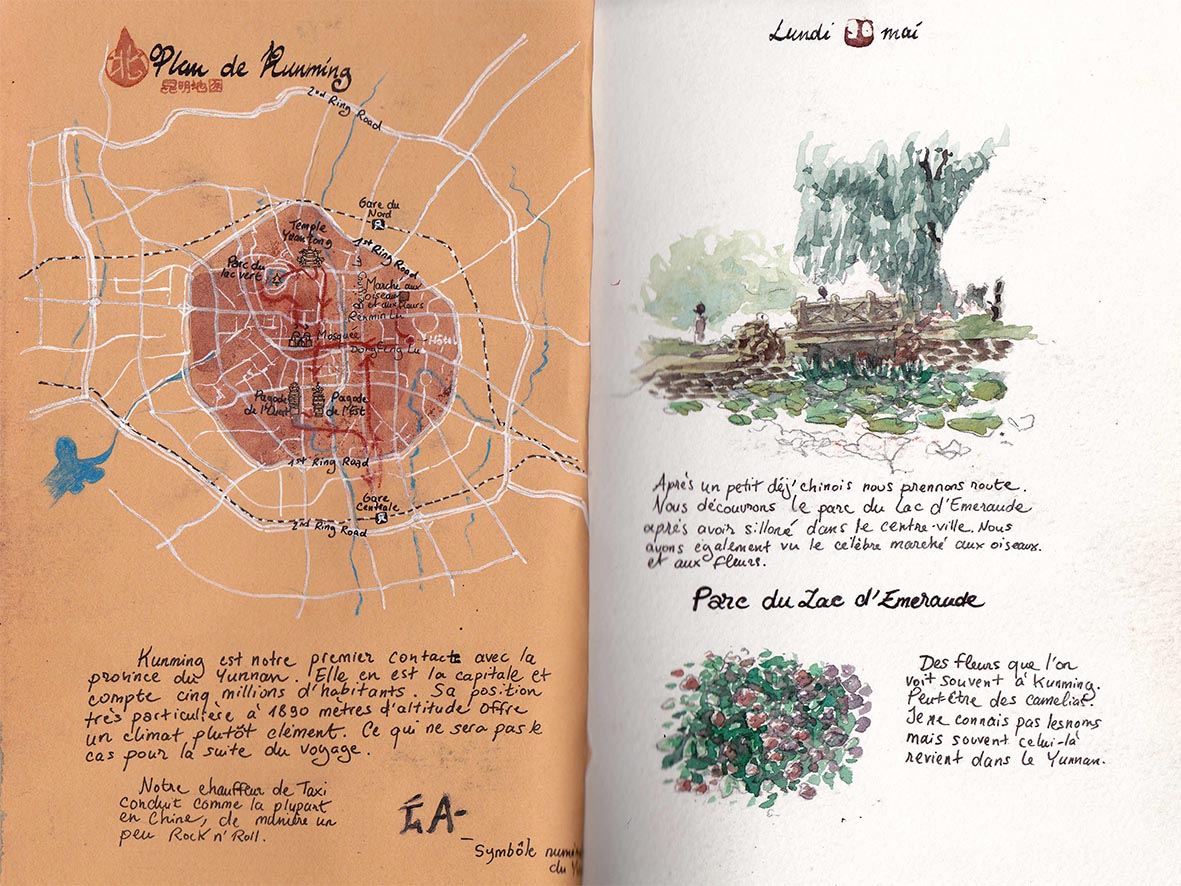 北
Plan de Kunming
昆明地图
2nd Ring Road
Gare du
Nord
Temple
Yuantong
1st Ring Road
Parc du
lac vert
Beijing Lu
Marché aux
oiseaux
et aux fleurs
Renmin Lu
Mosquée
Dongfeng Lu
Hôtel
Pagode
de l'Ouest
Pagode
de l'Est
1st Ring Road
Gare
Centrale
2nd Ring Road
Kunming est notre premier contact avec la
province du Yunnan. Elle en est la capitale et
compte cinq millions d'habitants. Sa position
très particulière à 1890 mètres d'altitude offre
un climat plutôt clément. Ce qui ne sera pas le
cas pour la suite du voyage.
Notre chauffeur de Taxi
conduit comme la plupart
en Chine, de manière un
peu Rock n' Roll.
Symbôle
du
Lundi mai
Après un petit déj' chinois nous prennons route.
Nous découvrons le parc du Lac d'Emeraude
après avoir silloné dans le centre-ville. Nous
avons également vu le célèbre marché aux oiseaux.
et aux fleurs.
Parc du Lac d'Emeraude
Des fleurs que l'on
voit souvent à Kunming.
Peut être des camelias.
Je ne connais pas les noms
mais souvent celui-là
revient dans le Yunnan.